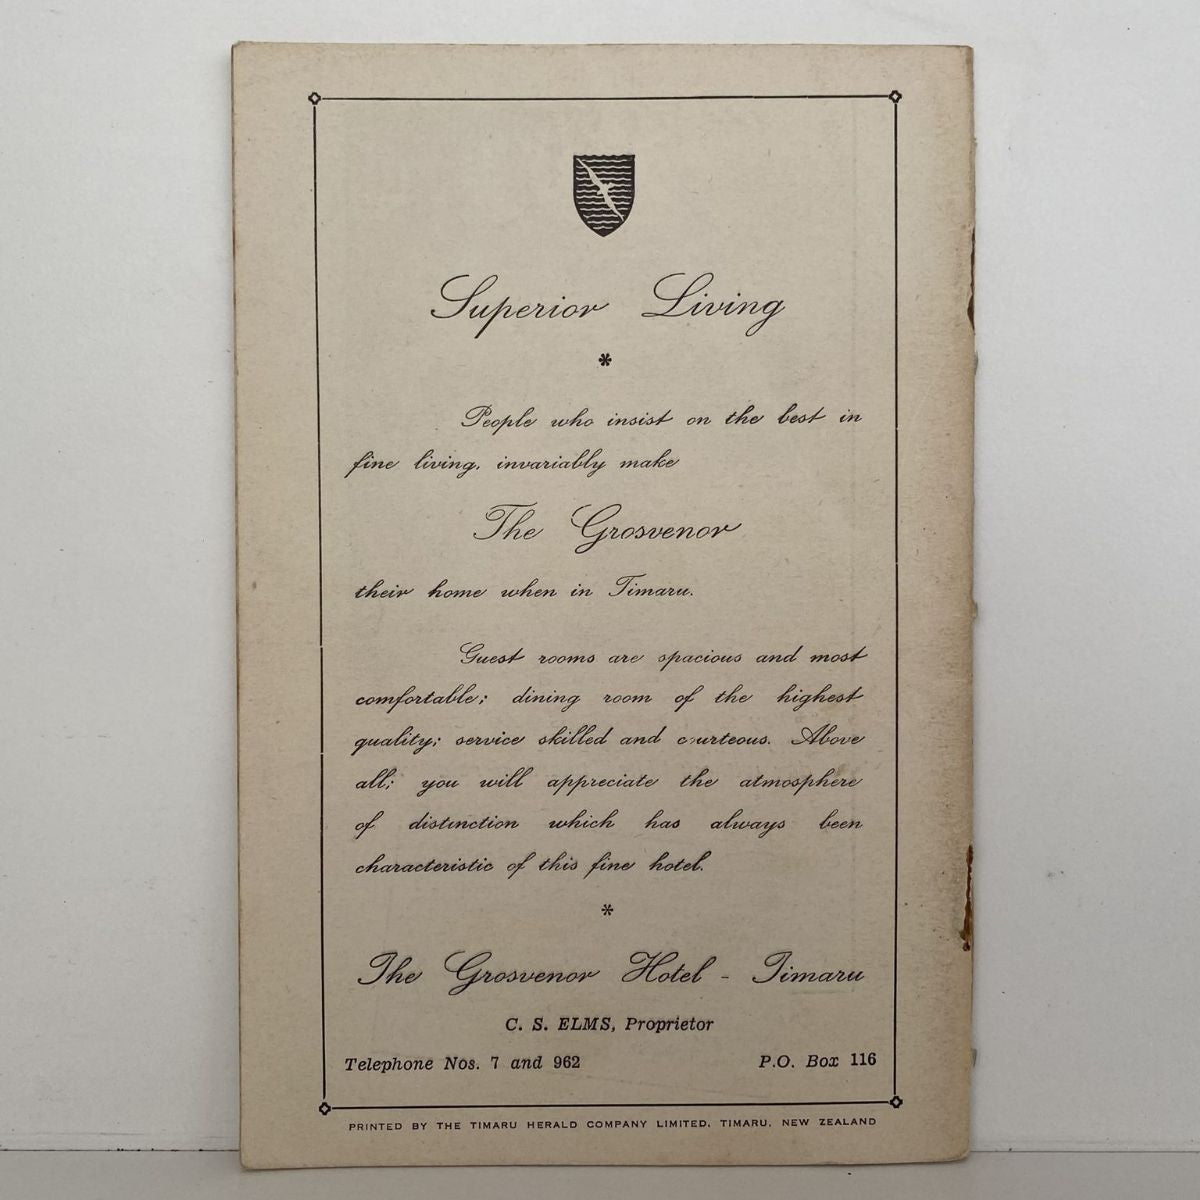 Superior Living
*
People who insist on the best in
fine living, invariably make
The Grosvenor
their home when in Timaru.
Guest rooms are spacious and most
comfortable; dining room of the highest
quality; service skilled and courteous. Above
all; you will appreciate the atmosphere
of distinction which has always been
characteristic of this fine hotel.
*
The Grosvenor Hotel - Timaru
C. S. ELMS, Proprietor
Telephone Nos. 7 and 962 P.O. Box 116
PRINTED BY THE TIMARU HERALD COMPANY LIMITED, TIMARU, NEW ZEALAND